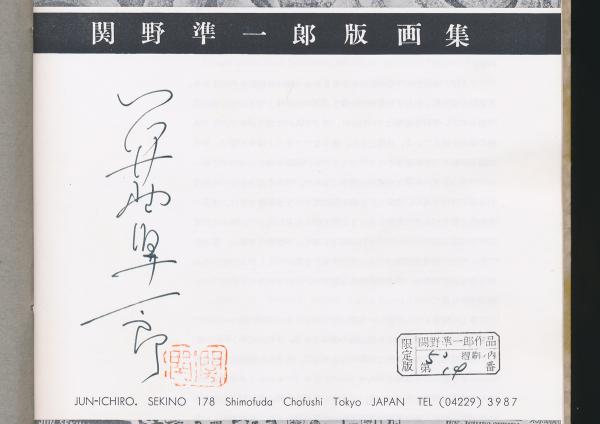 関野準一郎版画集
関野準一郎
関野準一郎作品
限定版
50 摺刷ノ内
第 14 番
JUN-ICHIRO. SEKINO 178 Shimofuda Chofushi Tokyo JAPAN TEL (04229) 3987